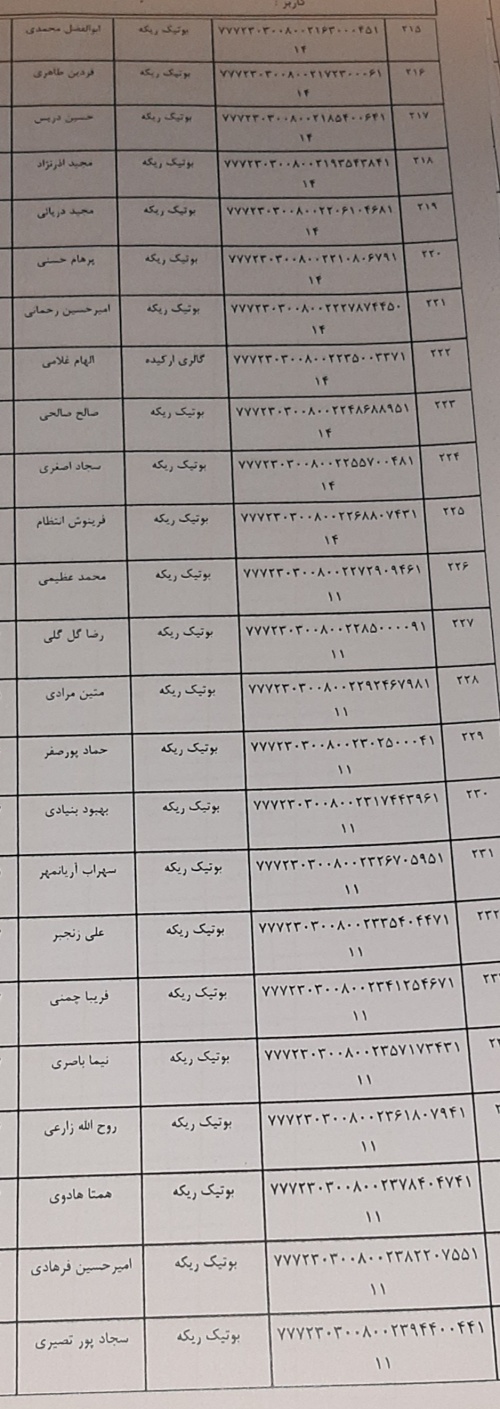 کاربر :
۲۱۵ ۷۷۷۲۳۰۳۰۰۸۰۰۲۱۶۳۰۰۰۴۵۱ بوتیک ریکه ابوالفضل محمدی
۱۴
۲۱۶ ۷۷۷۲۳۰۳۰۰۸۰۰۲۱۷۲۳۰۰۰۶۱ بوتیک ریکه فردین طاهری
۱۴
۲۱۷ ۷۷۷۲۳۰۳۰۰۸۰۰۲۱۸۵۴۰۰۶۴۱ بوتیک ریکه حسین دریس
۱۴
۲۱۸ ۷۷۷۲۳۰۳۰۰۸۰۰۲۱۹۳۵۴۳۸۴۱ بوتیک ریکه مجید اذرنژاد
۱۴
۲۱۹ ۷۷۷۲۳۰۳۰۰۸۰۰۲۲۰۶۱۰۴۶۸۱ بوتیک ریکه مجید دریائی
۱۴
۲۲۰ ۷۷۷۲۳۰۳۰۰۸۰۰۲۲۱۰۸۰۶۷۹۱ بوتیک ریکه پرهام حسنی
۱۴
۲۲۱ ۷۷۷۲۳۰۳۰۰۸۰۰۲۲۲۷۸۷۴۴۵۰ بوتیک ریکه امیرحسین رحمانی
۱۴
۲۲۲ ۷۷۷۲۳۰۳۰۰۸۰۰۲۲۳۵۰۰۳۳۷۱ گالری ارکیده الهام غلامی
۱۴
۲۲۳ ۷۷۷۲۳۰۳۰۰۸۰۰۲۲۴۸۶۸۸۹۵۱ بوتیک ریکه صالح صالحی
۱۴
۲۲۴ ۷۷۷۲۳۰۳۰۰۸۰۰۲۲۵۵۷۰۰۴۸۱ بوتیک ریکه سجاد اصغری
۱۴
۲۲۵ ۷۷۷۲۳۰۳۰۰۸۰۰۲۲۶۸۸۰۷۴۳۱ بوتیک ریکه فرینوش انتظام
۱۴
۲۲۶ ۷۷۷۲۳۰۳۰۰۸۰۰۲۲۷۲۹۰۹۴۶۱ بوتیک ریکه محمد عظیمی
۱۱
۲۲۷ ۷۷۷۲۳۰۳۰۰۸۰۰۲۲۸۵۰۰۰۰۹۱ بوتیک ریکه رضا گل گلی
۱۱
۲۲۸ ۷۷۷۲۳۰۳۰۰۸۰۰۲۲۹۲۴۶۷۹۸۱ بوتیک ریکه متین مرادی
۱۱
۲۲۹ ۷۷۷۲۳۰۳۰۰۸۰۰۲۳۰۲۵۰۰۰۴۱ بوتیک ریکه حماد پورصفر
۱۱
۲۳۰ ۷۷۷۲۳۰۳۰۰۸۰۰۲۳۱۷۴۴۳۹۶۱ بوتیک ریکه بهبود بنیادی
۱۱
۲۳۱ ۷۷۷۲۳۰۳۰۰۸۰۰۲۳۲۶۷۰۵۹۵۱ بوتیک ریکه سهراب آریانمهر
۱۱
۲۳۲ ۷۷۷۲۳۰۳۰۰۸۰۰۲۳۳۵۴۰۴۴۷۱ بوتیک ریکه علی زنجبر
۱۱
۷۷۷۲۳۰۳۰۰۸۰۰۲۳۴۱۲۵۴۶۷۱ بوتیک ریکه فریبا چمنی
۱۱
۷۷۷۲۳۰۳۰۰۸۰۰۲۳۵۷۱۷۳۴۳۱ بوتیک ریکه نیما باصری
۱۱
۷۷۷۲۳۰۳۰۰۸۰۰۲۳۶۱۸۰۷۹۴۱ بوتیک ریکه روح الله زارعی
۱۱
۷۷۷۲۳۰۳۰۰۸۰۰۲۳۷۸۴۰۴۷۴۱ بوتیک ریکه همتا هادوی
۱۱
۷۷۷۲۳۰۳۰۰۸۰۰۲۳۸۲۲۰۷۵۵۱ بوتیک ریکه امیرحسین فرهادی
۱۱
۷۷۷۲۳۰۳۰۰۸۰۰۲۳۹۴۴۰۰۴۴۱ بوتیک ریکه سجاد پور نصیری
۱۱